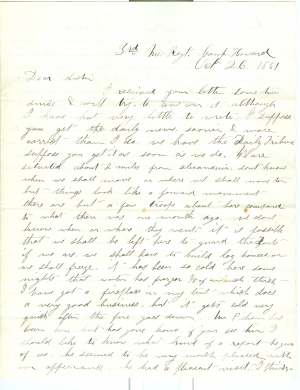 3rd Me. Regt. Camp Howard
Oct 26. 1861
Dear Sister
I received your letter some time
since & will try to answer it although
I have but very little to write. I suppose
you get the daily news sooner & more
correct than I do we have the Daily Tribune
suppose you get it as soon as we do. We are
situated about 2 miles from Alexandria dont know
when we shall move or where we shall move to
but things look like a forward movement
there are but a few troops about here compared
to what there was a month ago. we dont
know when or where they went. it is possible
that we shall be left here to guard this
if we are we shall have to build log houses or
we shall freeze. It has been so cold here some
nights that water has frozen
I have got a fireplace in my tent which does
a very good business, but it gets cold very
quick after the fire goes down. Mr
been here but has gone home if you see him I
should like to know what kind of a report he gave
of us. he seemed to be very much pleased with
our appearance. he had a pleasant visit I think